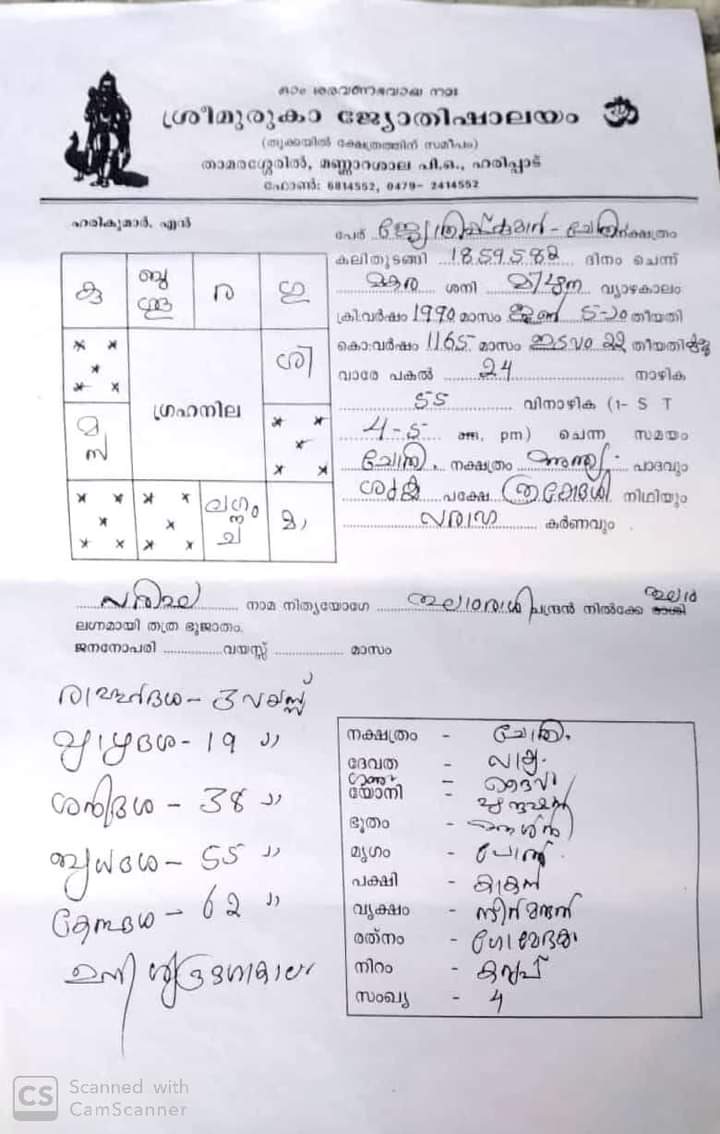 ഓം ശരവണഭവായ നമഃ
ശ്രീമുരുകാ ജ്യോതിഷാലയം ॐ
(തൃക്കയിൽ ക്ഷേത്രത്തിന് സമീപം)
താമരശ്ശേരിൽ, മണ്ണാറശാല പി.ഒ., ഹരിപ്പാട്
ഫോൺ: 6814552, 0479- 2414552
ഹരികുമാർ. എൻ
പേര് - ചോതി നക്ഷത്രം
കലിതുടങ്ങി 1859582 ദിനം ചെന്ന്
മകര ശനി മിഥുന വ്യാഴകാലം
ക്രി:വർഷം 1990 മാസം ജൂൺ 5-ാം തീയതി
കൊ:വർഷം 1165 മാസം ഇടവം 22 തീയതി
വാരേ പകൽ 24 നാഴിക
55 വിനാഴിക (1- S T
4-5 am, pm) ചെന്ന സമയം
ചോതി നക്ഷത്രം അന്ത്യ പാദവും
ശുക്ല പക്ഷേ ത്രയോദശി തിഥിയും
കരണവും
കു ബു ശു ര ഗു
ശി
ഗ്രഹനില
മ
സ
ലഗ്നം
ച
മാ
നാമ നിത്യയോഗേ തുലാരാശി ചന്ദ്രൻ നിൽക്കേ തുലാ
ലഗ്നമായി തത്ര ഭൂജാതം.
ജനനോപരി വയസ്സ് മാസം
രാഹുർദശ - 3 വയസ്സ്
വ്യാഴദശ - 19 "
ശനിദശ - 38 "
ബുധദശ - 55 "
കേതുദശ - 62 "
ഇനി ശുക്രദശാകാലം
നക്ഷത്രം - ചോതി
ദേവത - വായു
ഗണം - ദൈവ
യോനി - പുരുഷൻ
ഭൂതം - അഗ്നി
മൃഗം - പോത്ത്
പക്ഷി - കാകൻ
വൃക്ഷം - നീർമരുത്
രത്നം - ഗോമേദകം
നിറം - കറുപ്പ്
സംഖ്യ - 4
CS Scanned with
CamScanner